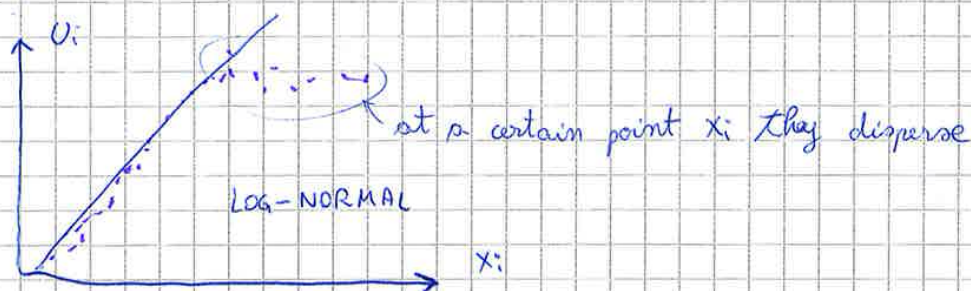 Ui
at a certain point xi they disperse
LOG-NORMAL
xi